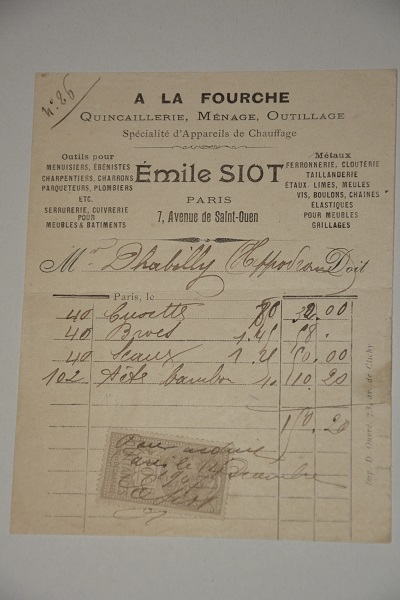 N° 26
A LA FOURCHE
QUINCAILLERIE, MÉNAGE, OUTILLAGE
Spécialité d'Appareils de Chauffage
Outils pour
MENUISIERS, ÉBÉNISTES
CHARPENTIERS, CHARRONS
PARQUETEURS, PLOMBIERS
ETC.
SERRURERIE, CUIVRERIE
POUR
MEUBLES & BATIMENTS
Émile SIOT
PARIS
7, Avenue de Saint-Ouen
Métaux
FERRONNERIE, CLOUTERIE
TAILLANDERIE
ÉTAUX, LIMES, MEULES
VIS, BOULONS, CHAINES
ÉLASTIQUES
POUR MEUBLES
GRILLAGES
Mr Hippodrome Doit
Paris, le
40 Cuvettes 80 32.00
40 Brocs 1.45 58.
40 Seaux
102 110.20
Pour acquit
Paris le 14
Siot